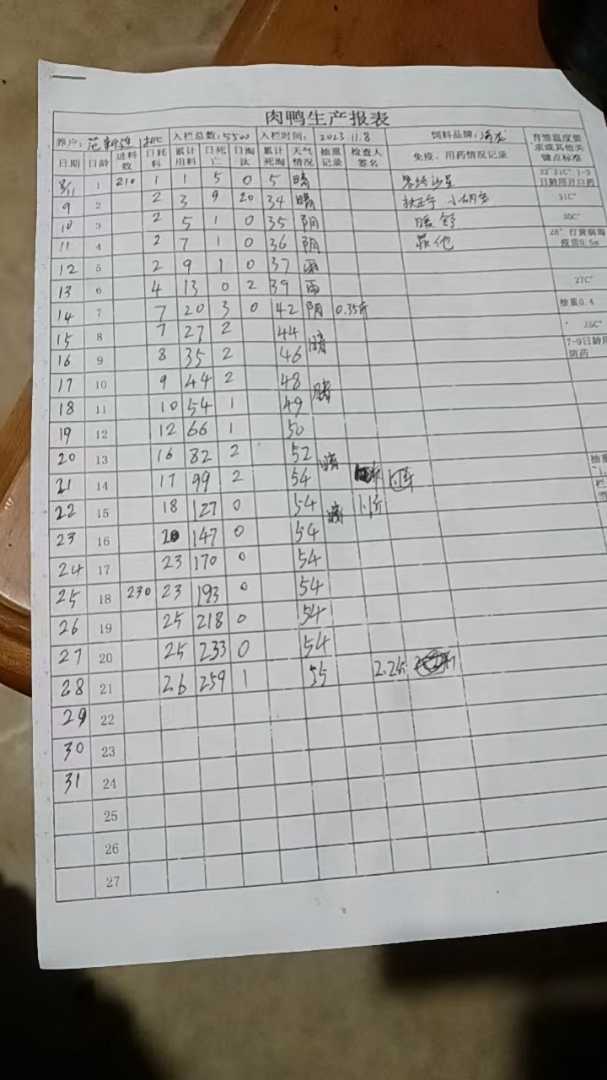 肉鸭生产报表
养户: 范 入栏总数: 5500 入栏时间: 2023.11.8 饲料品牌: 育雏温度要求或其他关键点标准
日期 日龄 进料数 日耗料 累计用料 日死亡 日淘汰 累计死淘 天气情况 抽重记录 检查人签名 免疫、用药情况记录
8/11 1 210 1 1 5 0 5 晴 33°-31C° 1-3日龄用开口药
9 2 2 3 9 20 34 晴 31C°
10 3 2 5 1 0 35 阴 30C°
11 4 2 7 1 0 36 阴 28°
12 5 2 9 1 0 37 雨
13 6 4 13 0 2 39 雨 27C°
14 7 7 20 3 0 42 阴 0.35斤 抽重0.4
15 8 7 27 2 44 晴 26C°
16 9 8 35 2 46 7-9日龄用防药
17 10 9 44 2 48 晴
18 11 10 54 1 49
19 12 12 66 1 50
20 13 16 82 2 52 晴
21 14 17 99 2 54 抽重
22 15 18 127 0 54 晴 1.1斤
23 16 20 147 0 54
24 17 23 170 0 54
25 18 230 23 193 0 54
26 19 25 218 0 54
27 20 25 233 0 54
28 21 26 259 1 55 2.2斤
29 22
30 23
31 24
25
26
27